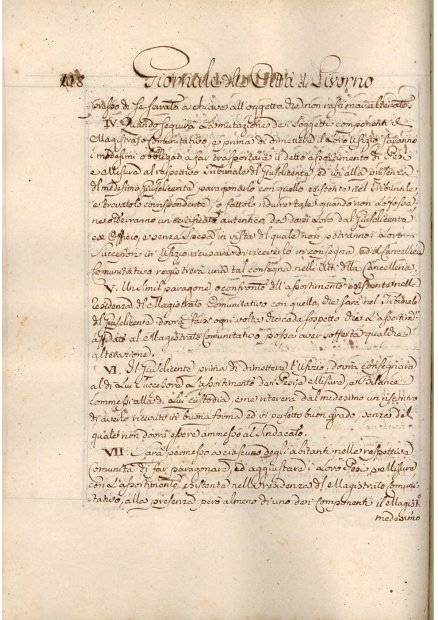 118 Giornale di Livorno
IV Quando seguirà la mutazione dei Soggetti componenti il
Magistrato Comunitativo, e prima di dimettere il loro Ufizio saranno
i medesimi obbligati a far trasportare il detto assortimento di Pesi
e Misure al respettivo Tribunale del Giusdicente, ed ivi alla presenza
del medesimo Giusdicente paragonarlo con quello esistente nel Tribunale,
e trovatolo corrispondente, o fattolo ridurre tale quando non lo fosse,
ne otterranno un certificato autentico da darsi loro dal Giusdicente
ex Officio, e senza spesa in vista del quale non potranno i loro
Successori in Ufizio ricusare di riceverlo in consegna, ed il Cancelliere
Comunitativo registrerà una tal consegna nelli Atti della Cancelleria.
V. Un simil paragone o confronto dell'assortimento esistente nella
residenza del Magistrato Comunitativo con quello che sarà nel Tribunale
del Giusdicente dovrà farsi ogni volta che cada sospetto che l'assortimento
affidato al Magistrato Comunitativo possa aver sofferta qualche
alterazione.
VI. Il Giusdicente prima di dimettere l'Ufizio, dovrà consegnare
al di Lui Successore l'assortimento dei Pesi, e Misure, e Bilancie
commesse alla di Lui custodia, e ne ritirerà dal medesimo un riscontro
di averlo ricevuto in buona forma, ed in perfetto buon grado, senza del
quale non dovrà essere ammesso al Sindacato.
VII Sarà permesso a ciascuno degli abitanti nelle respettive
Comunità di far paragonare, ed aggiustare i loro Pesi, e Misure
con l'assortimento esistente nella residenza del Magistrato Comuni-
tativo, alla presenza però almeno di uno dei Componenti il Magist.º
medesimo